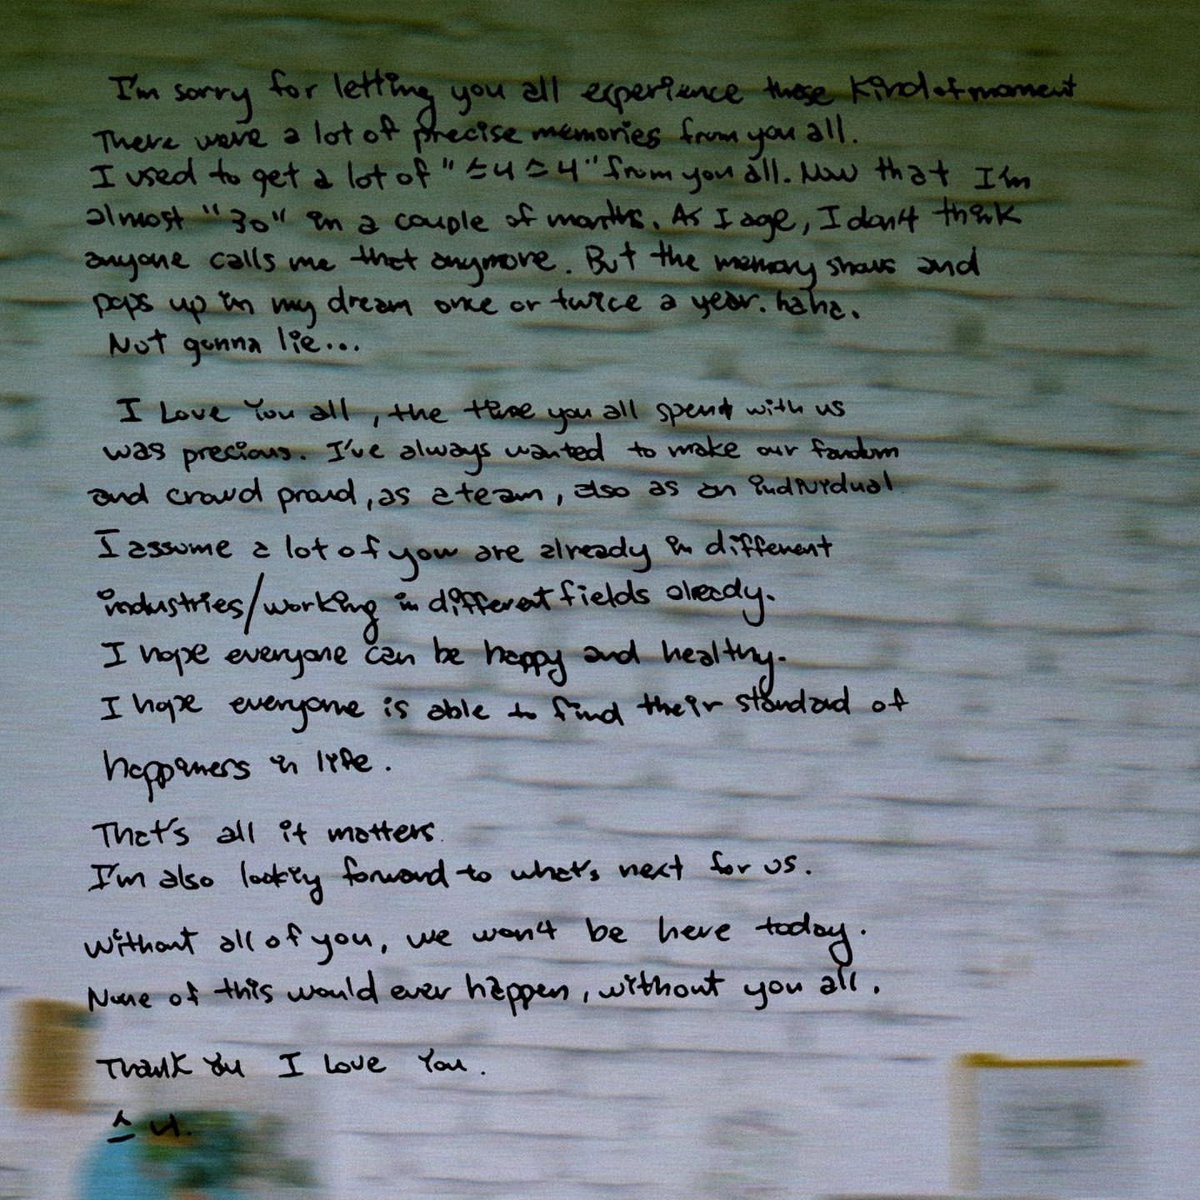 I'm sorry for letting you all experience those kind of moment
There were a lot of precise memories from you all.
I used to get a lot of "스너스너" from you all. Now that I'm
almost "30" in a couple of months. As I age, I don't think
anyone calls me that anymore. But the memory shows and
pops up in my dream once or twice a year. haha.
Not gonna lie...
I Love You all, the time you all spent with us
was precious. I've always wanted to make our fandom
and crowd proud, as a team, also as an individual
I assume a lot of you are already in different
industries/working in different fields already.
I hope everyone can be happy and healthy.
I hope everyone is able to find their standard of
happiness in life.
That's all it matters.
I'm also looking forward to what's next for us.
Without all of you, we won't be here today.
None of this would ever happen, without you all.
Thank You I Love You.
스너.